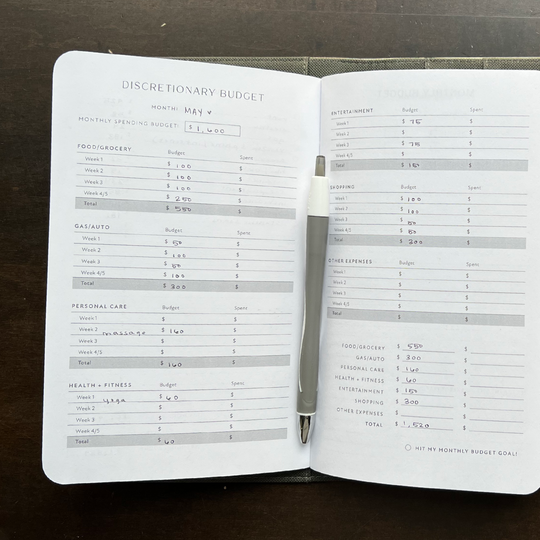 DISCRETIONARY BUDGET
MONTH: MAY
MONTHLY SPENDING BUDGET: $ 1,600
FOOD/GROCERY Budget Spent
Week 1 $ 100 $
Week 2 $ 100 $
Week 3 $ 100 $
Week 4/5 $ 250 $
Total $ 550 $
GAS/AUTO Budget Spent
Week 1 $ 50 $
Week 2 $ 100 $
Week 3 $ 50 $
Week 4/5 $ 100 $
Total $ 300 $
PERSONAL CARE Budget Spent
Week 1 $ $
Week 2 massage $ 160 $
Week 3 $ $
Week 4/5 $ $
Total $ 160 $
HEALTH + FITNESS Budget Spent
Week 1 yoga $ 60 $
Week 2 $ $
Week 3 $ $
Week 4/5 $ $
Total $ 60 $
ENTERTAINMENT Budget Spent
Week 1 $ 75 $
Week 2 $ $
Week 3 $ 75 $
Week 4/5 $ $
Total $ 150 $
SHOPPING Budget Spent
Week 1 $ 100 $
Week 2 $ 100 $
Week 3 $ 50 $
Week 4/5 $ 50 $
Total $ 300 $
OTHER EXPENSES Budget Spent
Week 1 $ $
Week 2 $ $
Week 3 $ $
Week 4/5 $ $
Total $ $
FOOD/GROCERY $ 550 $
GAS/AUTO $ 300 $
PERSONAL CARE $ 160 $
HEALTH + FITNESS $ 60 $
ENTERTAINMENT $ 150 $
SHOPPING $ 300 $
OTHER EXPENSES $ $
TOTAL $ 1,520 $
HIT MY MONTHLY BUDGET GOAL!